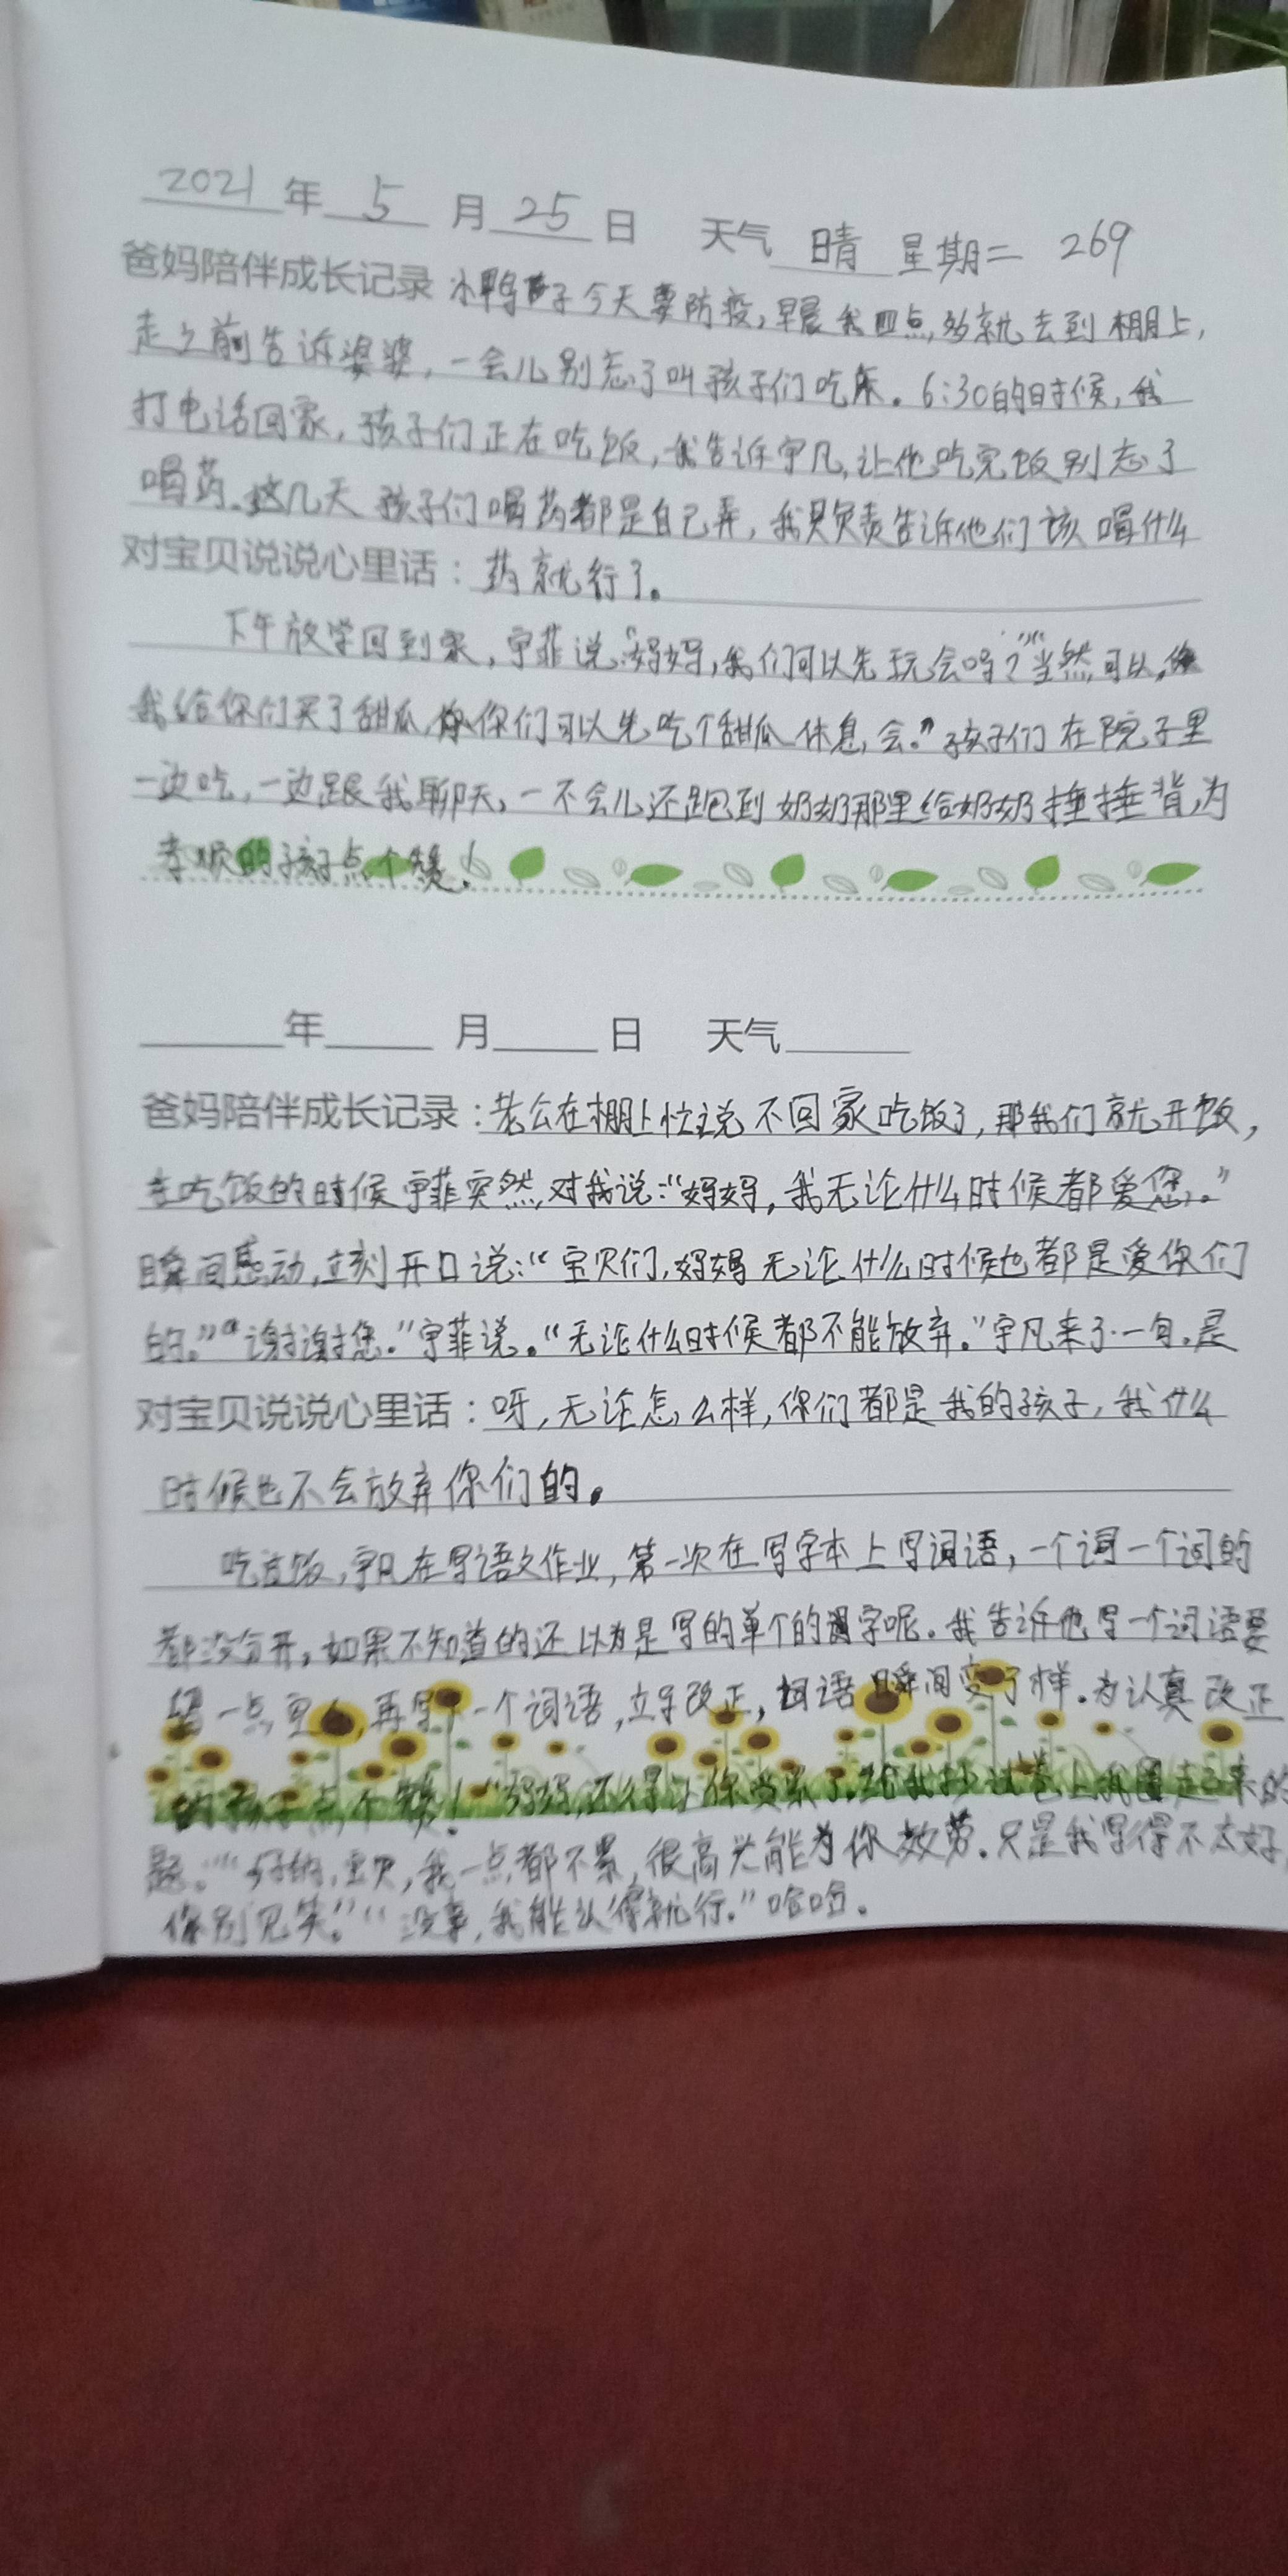 2021年5月25日 天气 晴 星期二 269
爸妈陪伴成长记录 小鸭子今天要防疫,早晨我四点多就去到棚上,
走之前告诉婆婆,一会儿别忘了叫孩子们吃饭。6:30的时候,我
打电话回家,孩子们正在吃饭,我告诉宇凡,让他吃完饭别忘了
喝药。这几天孩子们喝药都是自己弄,我只负责告诉他们该喝什么
对宝贝说说心里话:药就行了。
下午放学回到家,宇菲说:“妈妈,我们可以先玩会吗?”“当然可以,
我给你们买了甜瓜,你们可以先吃个甜瓜休息会。”孩子们在院子里
一边吃,一边跟我聊天,一不会儿还跑到奶奶那里给奶奶捶捶背,为
孝顺的孩子点个赞!
年 月 日 天气
爸妈陪伴成长记录:老公在棚上忙说不回家吃饭了,那我们就开饭,
在吃饭的时候宇菲突然对我说:“妈妈,我无论什么时候都爱您。”
瞬间感动,立刻开口说:“宝贝们,妈妈无论什么时候也都是爱你们
的。”“谢谢您。”宇菲说。“无论什么时候都不能放弃。”宇凡来了一句。是
对宝贝说说心里话:呀,无论怎么样,你们都是我的孩子,我什么
时候也不会放弃你们的。
吃过饭,宇凡在写语文作业,第一次在写字本上写词语,一个词一个词的
都没分开,如果不知道的还以为是写的单个的字呢。我告诉他写一个词语要
留一点空,再写下一个词语,立即改正,词语瞬间变了样。为认真改正
的孩子点个赞!“妈妈,还得让你受累了,给我抄试卷上我圈起来的
题。”“好的,宝贝,我一点都不累,很高兴能为你效劳。只是我写得不太好,
你别见笑。”“没事,我能认得就行。”哈哈。